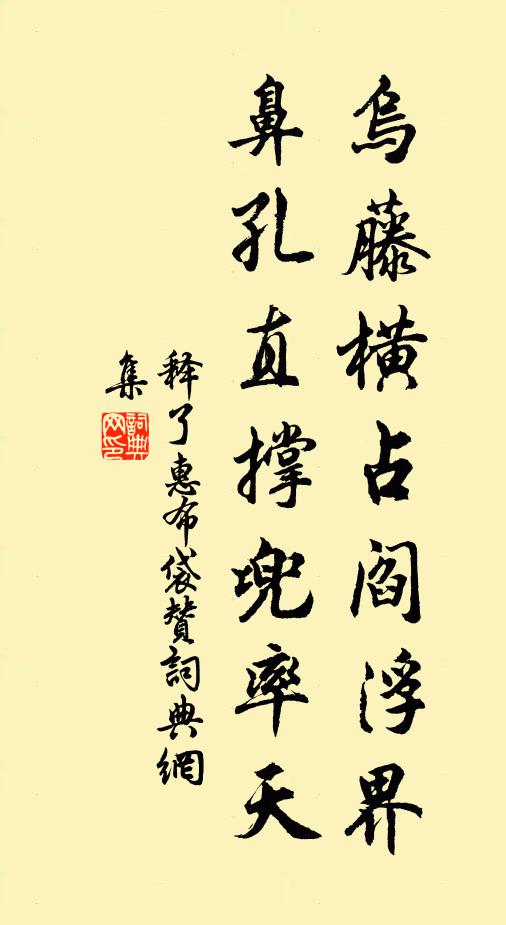 烏藤横占閻浮界
鼻孔直撑兜率天
释了惠布袋賛詞典網
集
詞典
网印